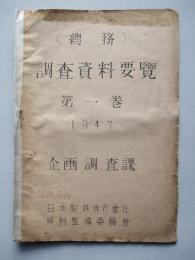 （總務）
調査資料要覽
第一巻
1947
企画調査課
日本製鉄株式會社
資料整備委員會